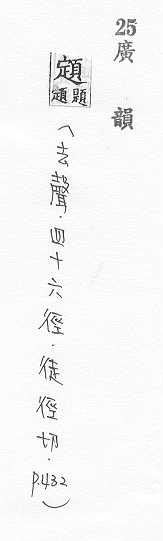 25 廣韻
顁
題
顁
（去聲．四十六徑．徒徑切．P.432）